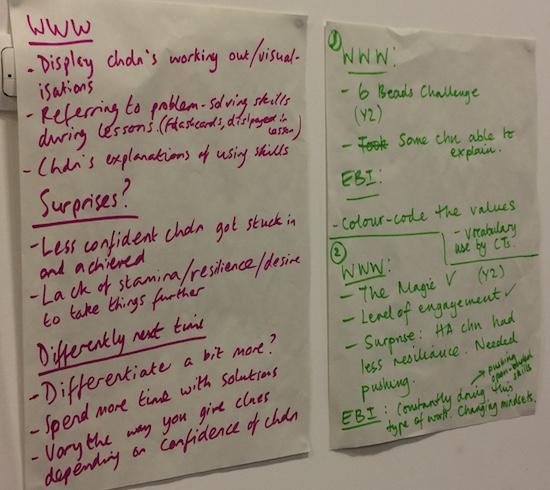 WWW
- Display chdn's working out/visual-
isations
- Referring to problem-solving skills
during lessons. (Flashcards, displayed in
lesson)
- Chdn's explanations of using skills
Surprises?
- Less confident chdn got stuck in
and achieved
- Lack of stamina/resilience/desire
to take things further
Differently next time
- Differentiate a bit more?
- Spend more time with solutions
- Vary the way you give clues
depending on confidence of chdn
① WWW:
- 6 Beads Challenge
(Y2)
- Took Some chn able to
explain.
EBI:
- Colour-code the values
- Vocabulary
use by CTs.
② WWW:
- The Magic V (Y2)
- Level of engagement ✓
- Surprise: HA chn had
less resiliance. Needed
pushing.
→ pushing
open-ended
skills
EBI: Constantly doing this
type of work. Changing mindsets.